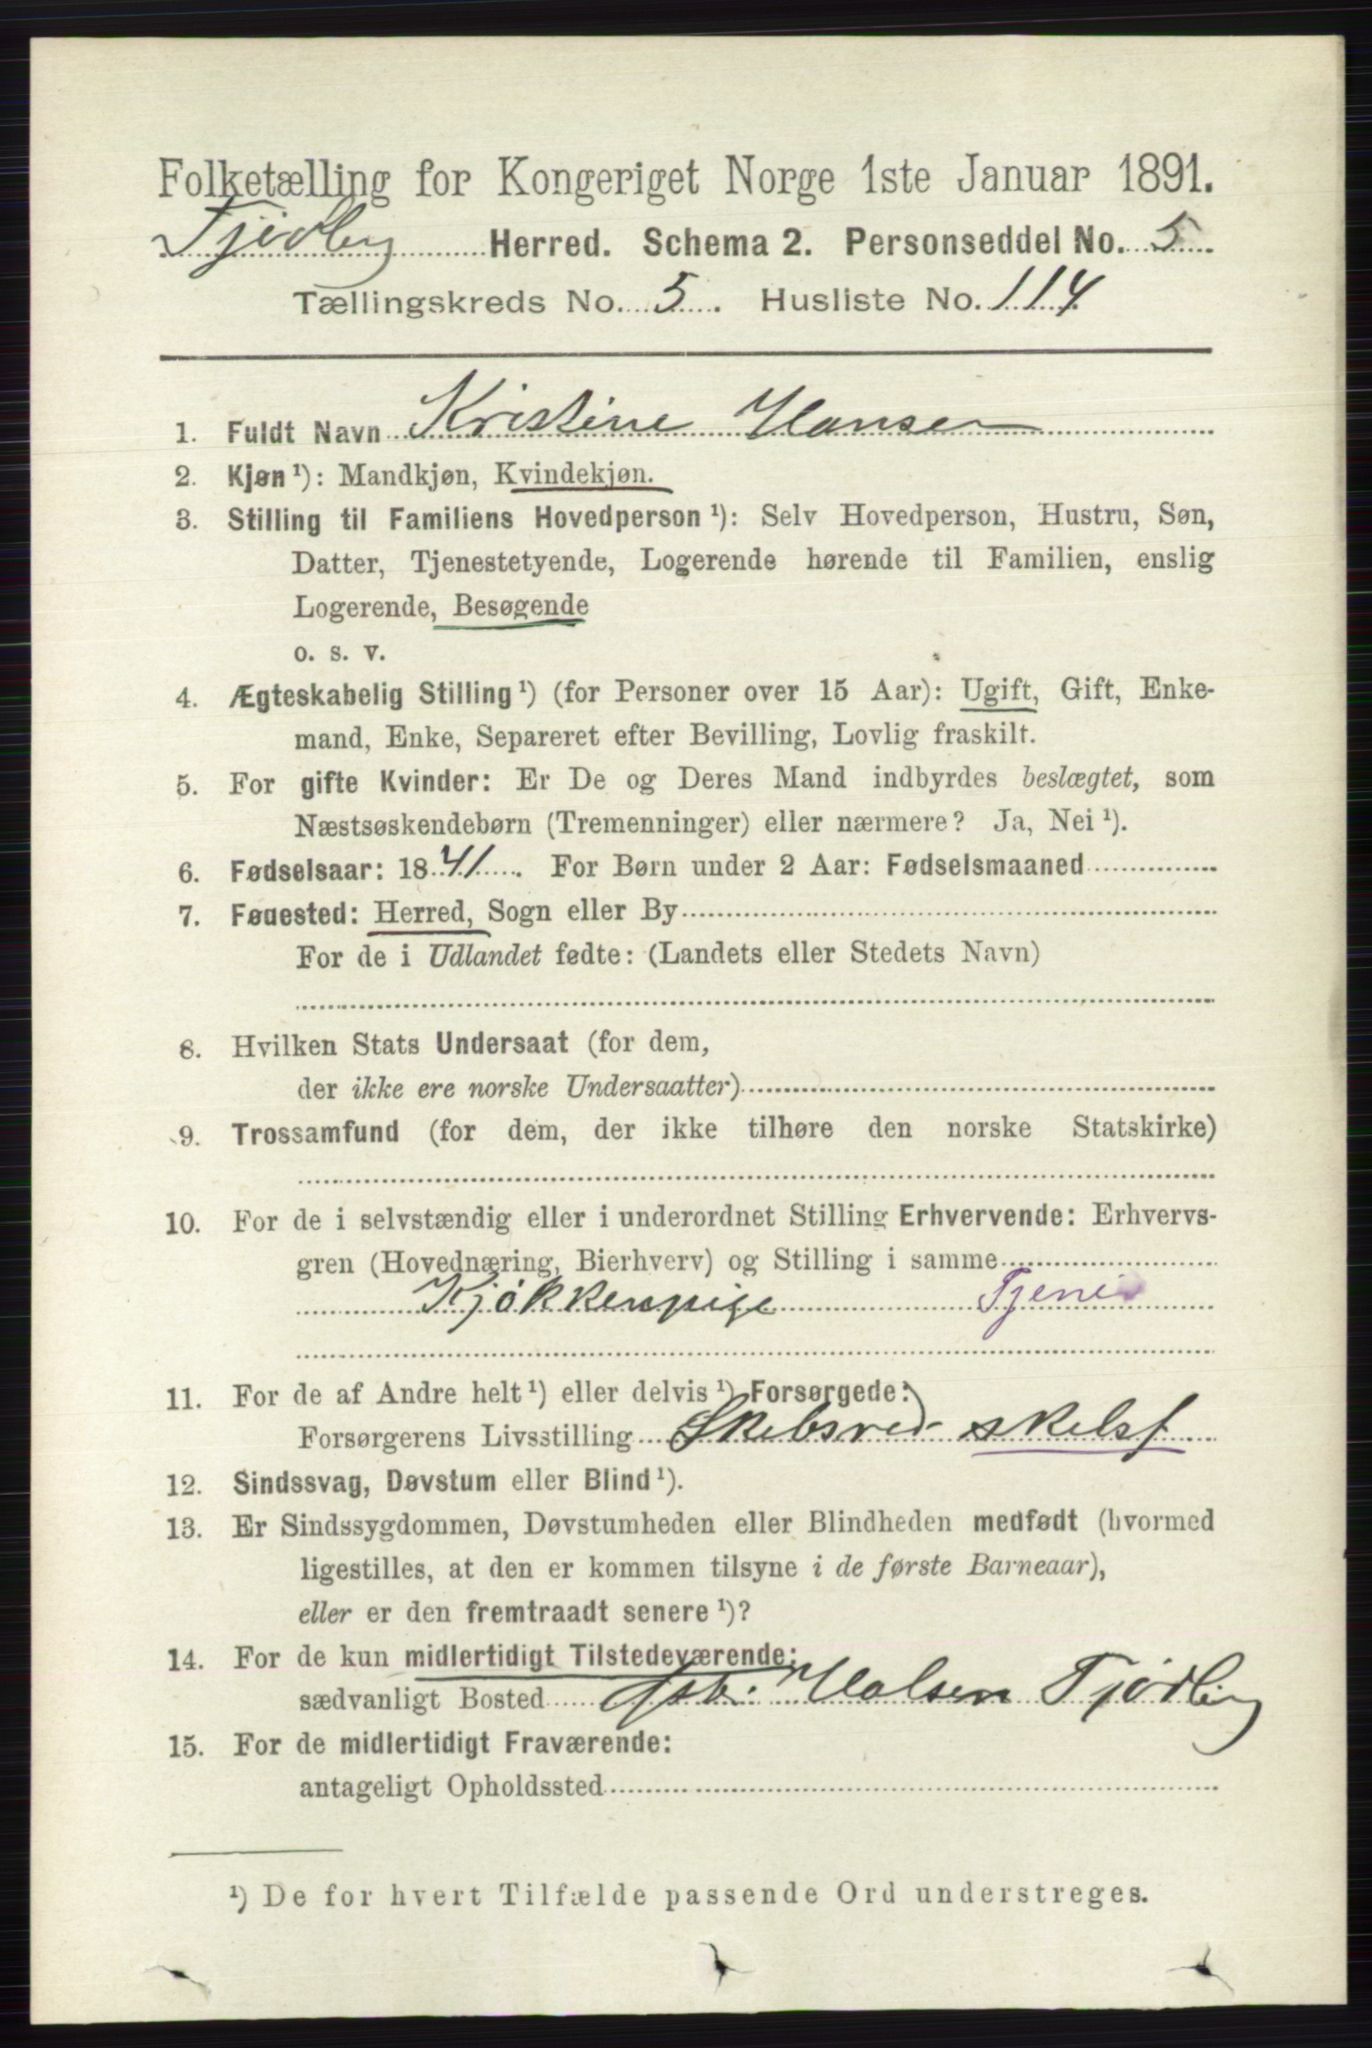 Folketælling for Kongeriget Norge 1ste Januar 1891.
Tjødling Herred. Schema 2. Personseddel No. 5
Tællingskreds No. 5. Husliste No. 114
1. Fuldt Navn Kristine Hansen
2. Kjøn ¹): Mandkjøn, Kvindekjøn.
3. Stilling til Familiens Hovedperson ¹): Selv Hovedperson, Hustru, Søn,
Datter, Tjenestetyende, Logerende hørende til Familien, enslig
Logerende, Besøgende
o. s. v.
4. Ægteskabelig Stilling ¹) (for Personer over 15 Aar): Ugift, Gift, Enke-
mand, Enke, Separeret efter Bevilling, Lovlig fraskilt.
5. For gifte Kvinder: Er De og Deres Mand indbyrdes beslægtet, som
Næstsøskendebørn (Tremenninger) eller nærmere? Ja, Nei ¹).
6. Fødselsaar: 1841. For Børn under 2 Aar: Fødselsmaaned
7. Føuested: Herred, Sogn eller By
For de i Udlandet fødte: (Landets eller Stedets Navn)
8. Hvilken Stats Undersaat (for dem,
der ikke ere norske Undersaatter)
9. Trossamfund (for dem, der ikke tilhøre den norske Statskirke)
10. For de i selvstændig eller i underordnet Stilling Erhvervende: Erhvervs-
gren (Hovednæring, Bierhverv) og Stilling i samme
Kjøkkenpige Tjenes
11. For de af Andre helt ¹) eller delvis ¹) Forsørgede:
Forsørgerens Livsstilling
12. Sindssvag, Døvstum eller Blind ¹).
13. Er Sindssygdommen, Døvstumheden eller Blindheden medfødt (hvormed
ligestilles, at den er kommen tilsyne i de første Barneaar),
eller er den fremtraadt senere ¹)?
14. For de kun midlertidigt Tilstedeværende:
sædvanligt Bosted Halsen Tjødling
15. For de midlertidigt Fraværende:
antageligt Opholdssted
¹) De for hvert Tilfælde passende Ord understreges.